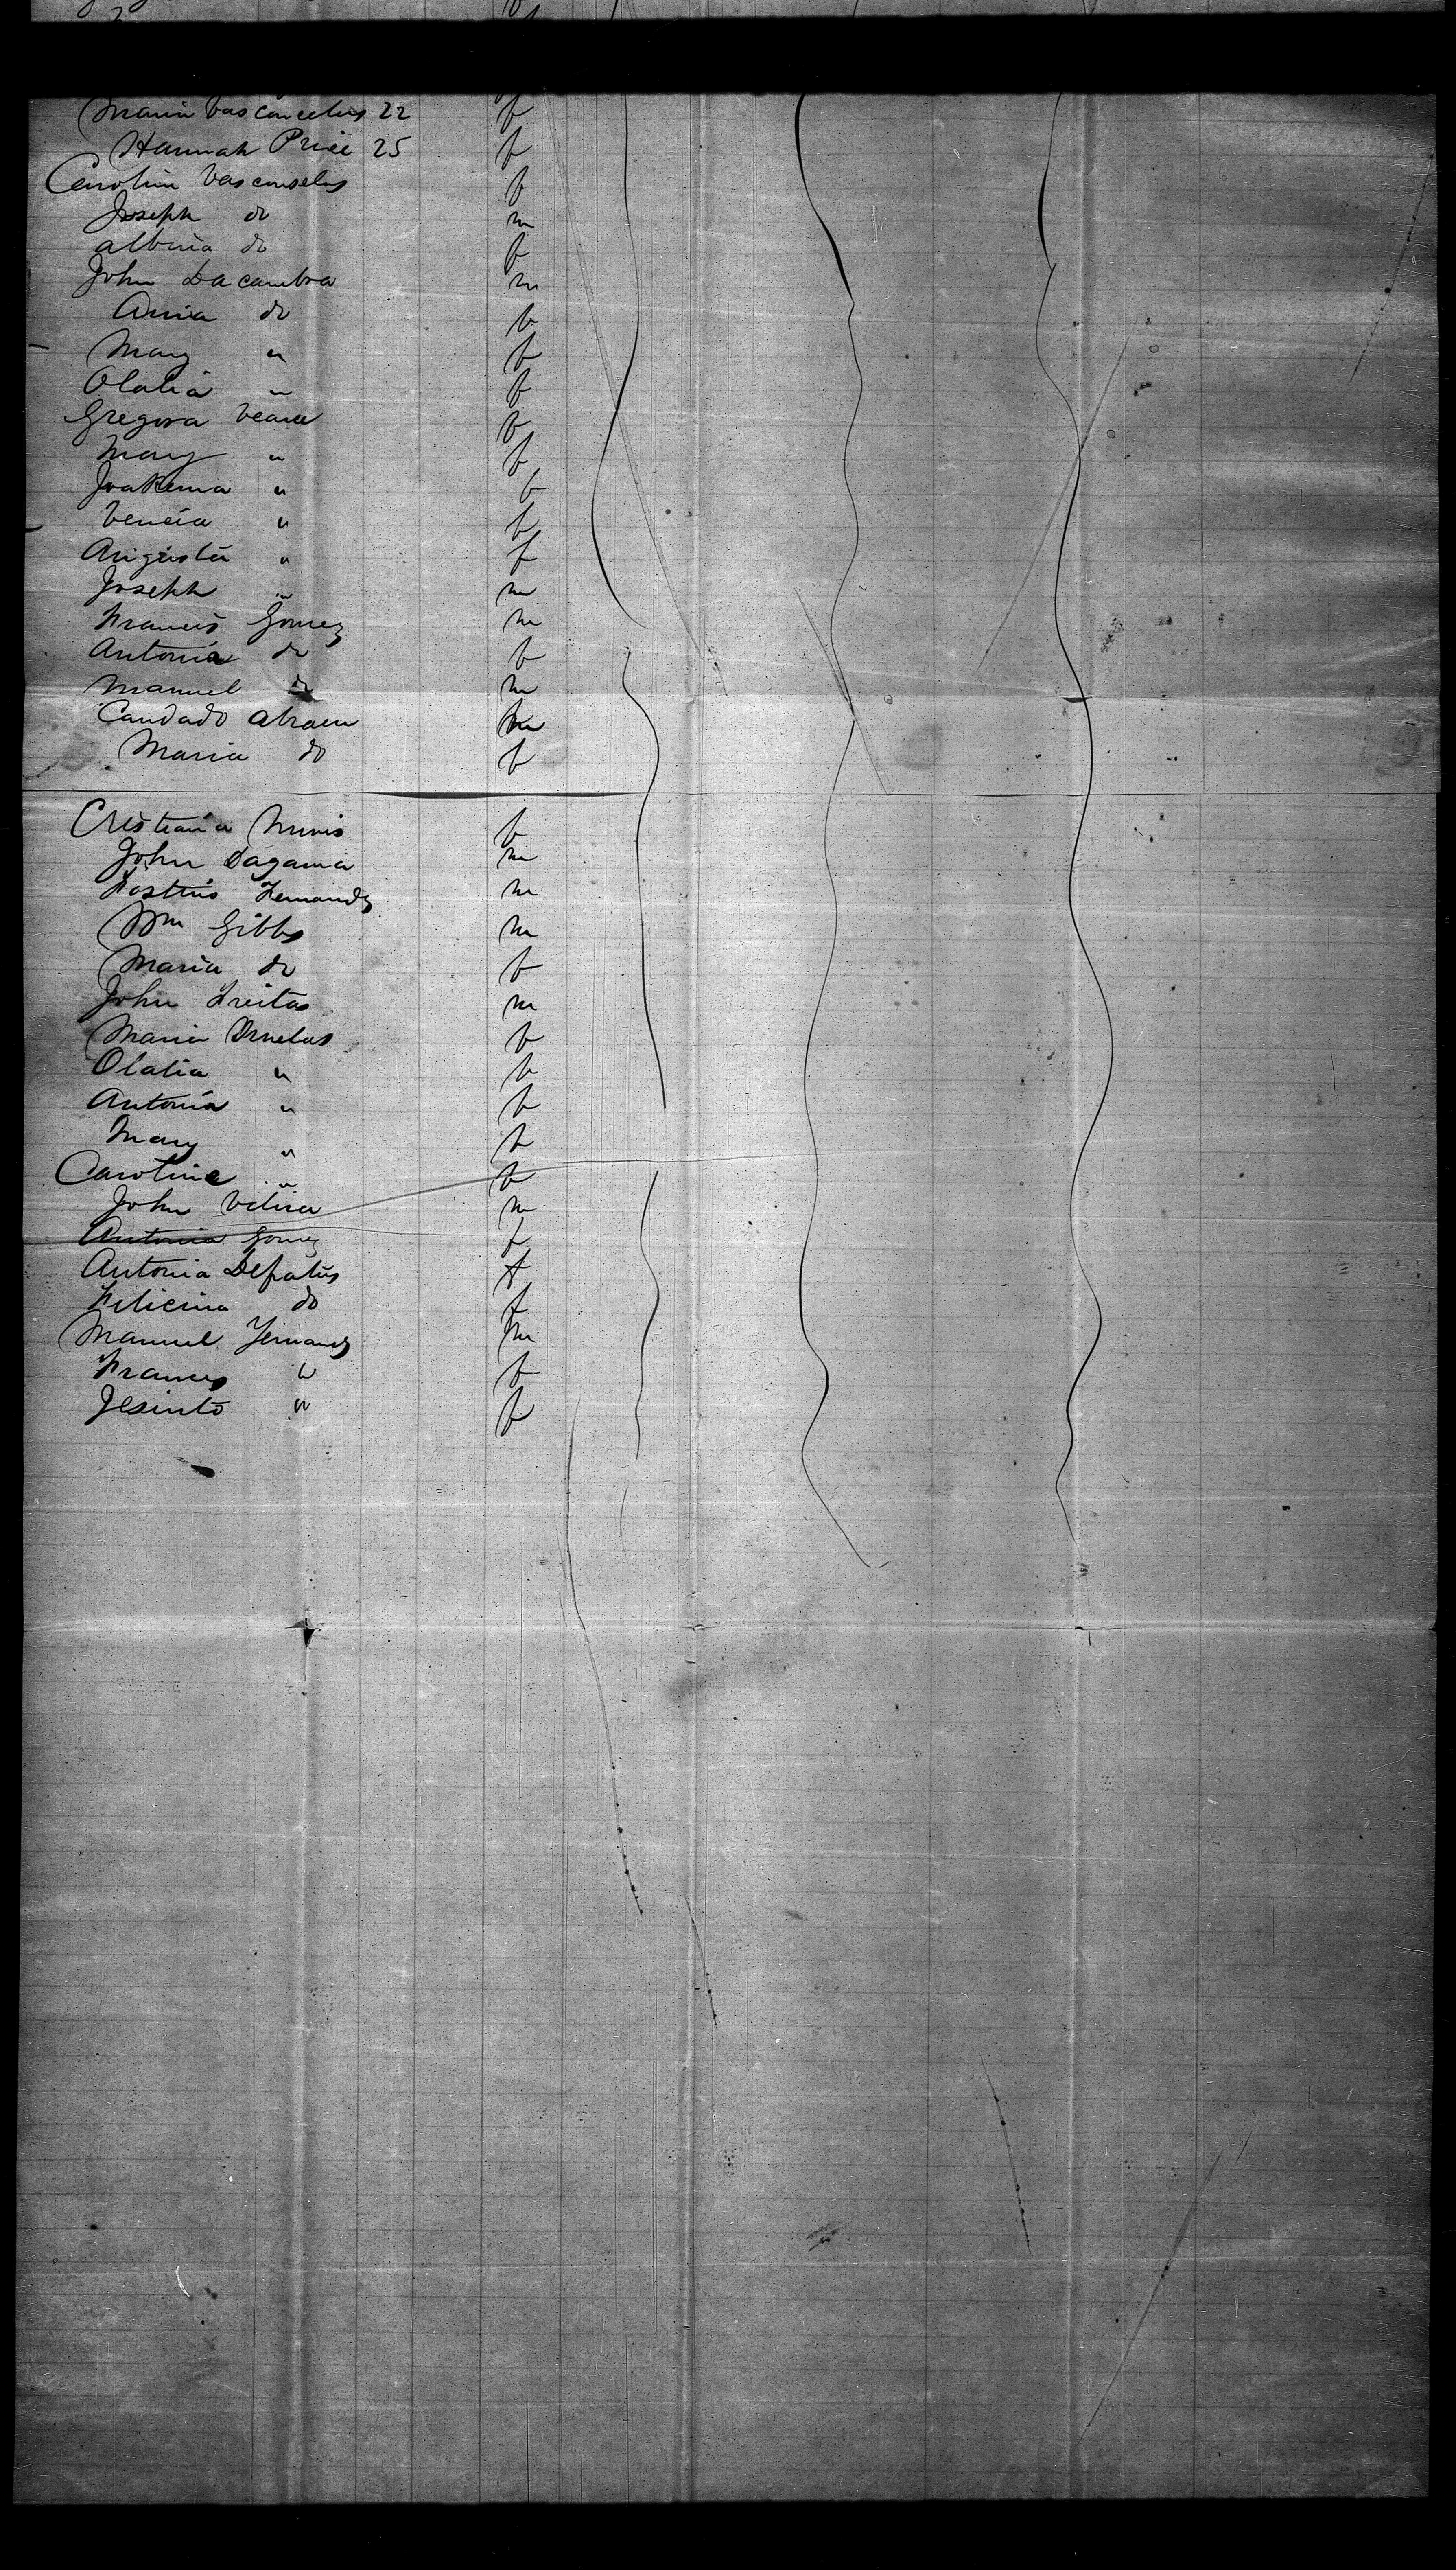 Maria Vasconcelus 22 f
Hannah Price 25 f
Caroline Vasconselus f
Joseph do m
Albina do f
John Dacambra m
Anna do f
Mary " f
Olalia " f
Gregora f
Mary " f
Joakema " f
" f
Augusta " f
Joseph " m
Francis Gomez m
Antonia do f
Manuel do m
Candado Abraeu m
Maria do f
Cristiana Nunis f
John Dagama m
Fernandz m
Wm Gibbs m
Maria do f
John Freitas m
Maria Ornelas f
Olalia " f
Antonia " f
Mary " f
Caroline " f
John m
Antonia Gomez f
Antonia f
Filicina do f
Manuel Fernandz m
Frances " f
Jesinto " f